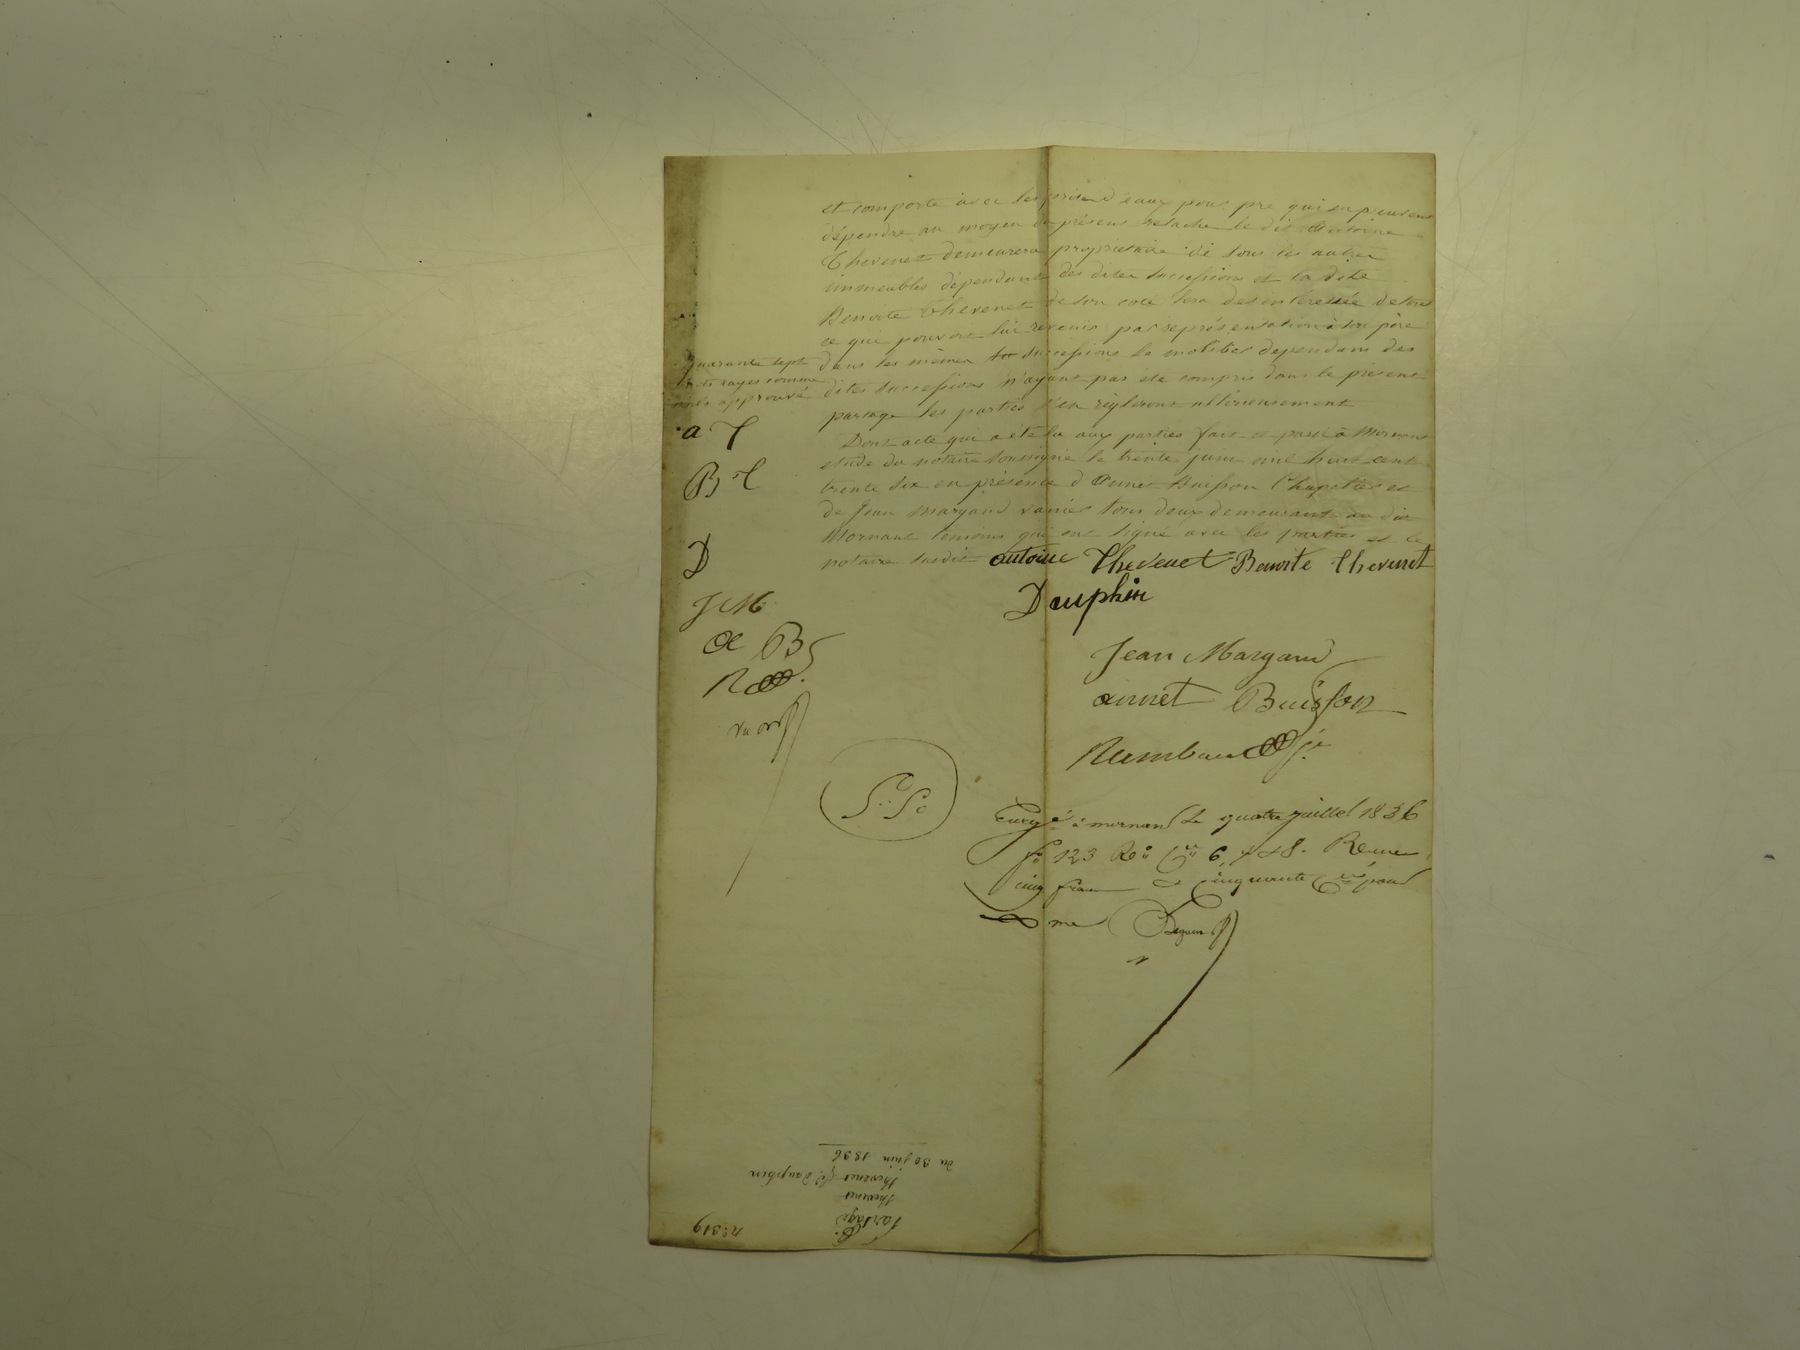 et comporte avec les prises d'eaux pour pre qui en peuvent
dépendre au moyen du présent relache le dit Antoine
Thevenet demeurera proprietaire de tous les autres
immeubles dépendant des dites successions et la dite
Benoite Thevenet de son coté sera desinteressée de tous
ce que pouvoit lui revenir par représentation à son père
dans les mêmes successions le mobilier dependant des
dites successions n'ayant pas été compris dans le present
partage les parties s'en régleront ultérieusement
Dont acte qui a été lu aux parties fait et passé à Mornant
etude du notaire soussigné le trente juin mil huit cent
trente six en présence d'Annet Buisson Chapelier et
de Jean Margand vanier tous deux demeurant au dit
Mornant temoins qui ont signé avec les parties et le
notaire susdit antoine Thevenet Benoite thevenet
Dauphin
quarante sept
mots rayes comme
nuls approuvé
a T
B T
D
J M
a B
Jean Margand
annet Buisson
Enrgé à mornant le quatre juillet 1836
fo 123 Ro Cses 6, 7 et 8. Reçu
cinq francs et cinquante Cmes pour
n°: 319
Partage
thevenet
thevenet fe Dauphin
du 30 juin 1836